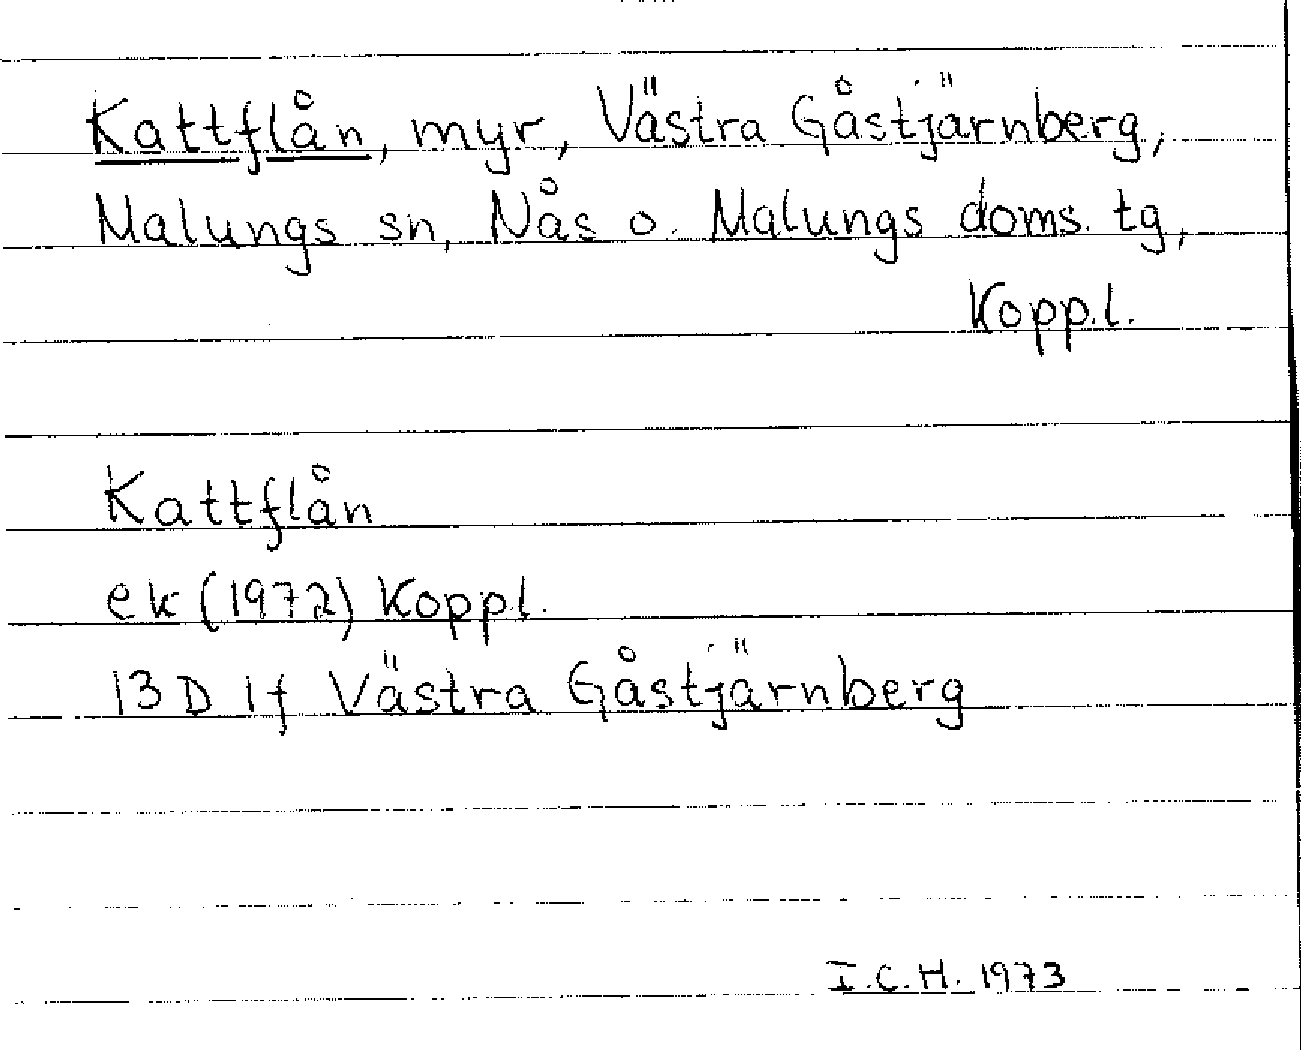 Kattflån, myr, Västra Gåstjärnberg,
Malungs sn, Nås o. Malungs doms. tg,
Kopp.l.
Kattflån
ek (1972) Koppl.
13 D 1f Västra Gåstjärnberg
I.C.H. 1973